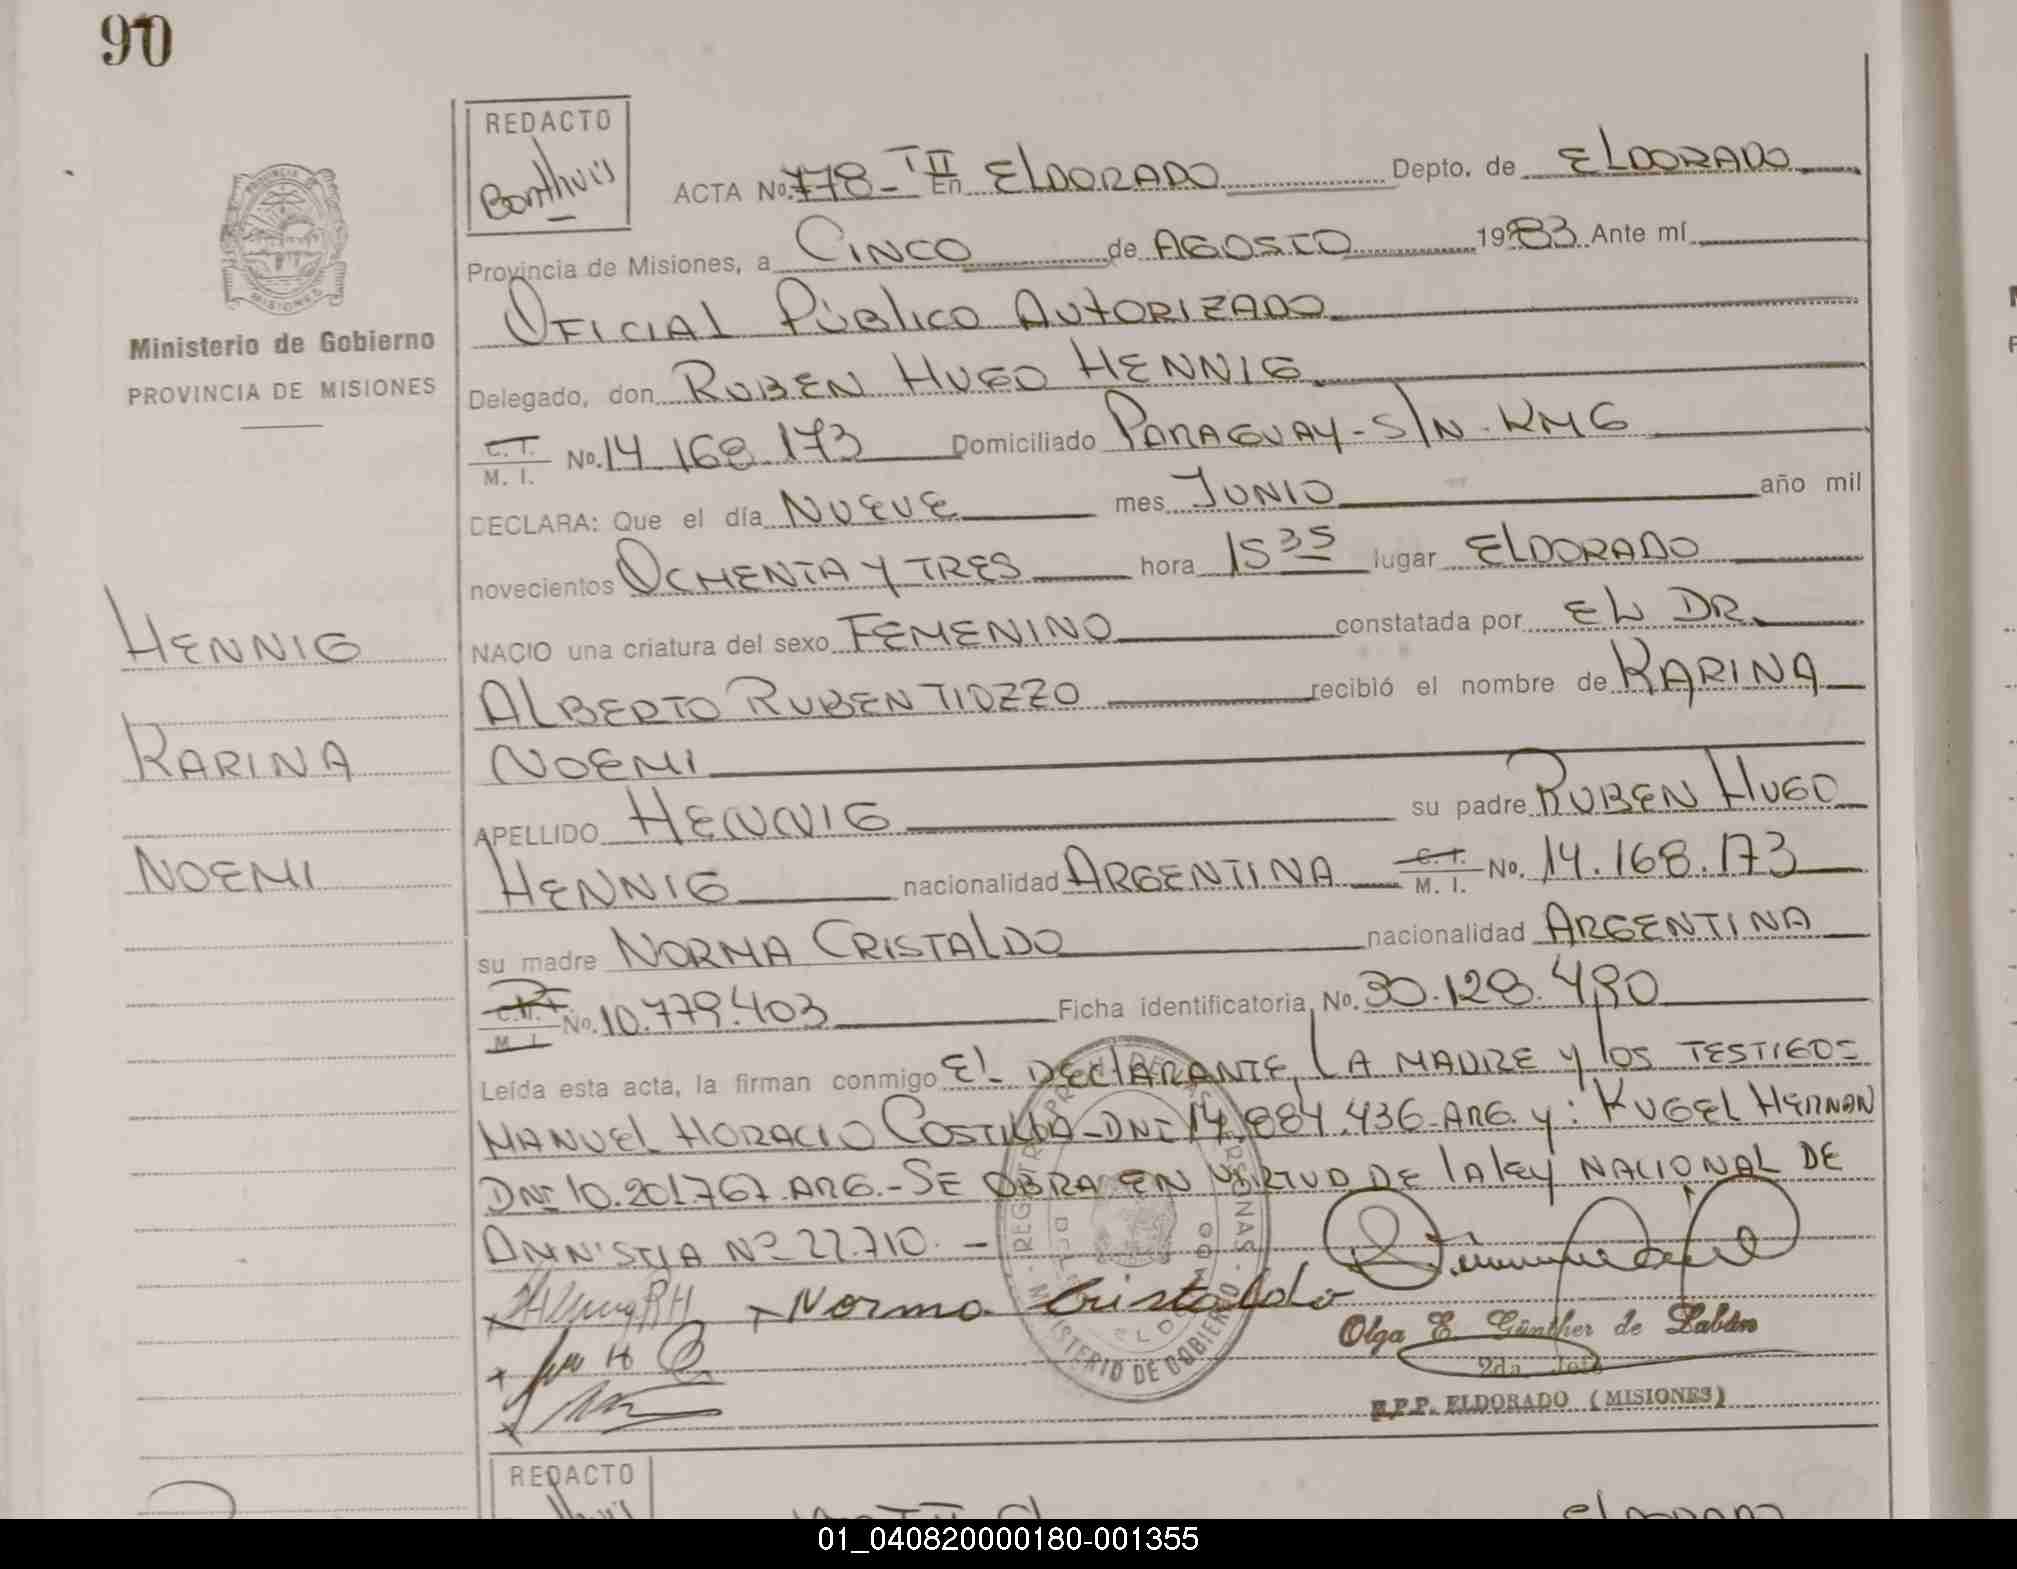 90
REDACTO
Bonthuis
ACTA No. 778-T II En ELDORADO Depto. de ELDORADO
Provincia de Misiones, a CINCO de AGOSTO 1983 Ante mí
OFICIAL PÚBLICO AUTORIZADO
Delegado, don RUBEN HUGO HENNIG
C. I. M. I. No. 14.168.173 Domiciliado PARAGUAY-S/N-KM6
DECLARA: Que el día NUEVE mes JUNIO año mil
novecientos OCHENTA Y TRES hora 15 35 lugar ELDORADO
NACIO una criatura del sexo FEMENINO constatada por EL DR.
ALBERTO RUBEN TIOZZO recibió el nombre de KARINA
NOEMI
APELLIDO HENNIG su padre RUBEN HUGO
HENNIG nacionalidad ARGENTINA C. I. M. I. No. 14.168.173
su madre NORMA CRISTALDO nacionalidad ARGENTINA
M. I. No. 10.779.403 Ficha identificatoria, No. 30.128.490
Leída esta acta, la firman conmigo EL DECLARANTE, LA MADRE Y LOS TESTIGOS
MANUEL HORACIO COSTILLA-DNI 14.884.436-ARG. y: KUGEL HERNAN
DNI 10.201.767.ARG.-SE OBRA EN VIRTUD DE LA LEY NACIONAL DE
AMNISTIA Nº 22.710. -
Norma Cristaldo
Olga E. Günther de Lablin
2da. Jefe
R.P.P. ELDORADO (MISIONES)
MINISTERIO DE GOBIERNO
ELDORADO
PROVINCIA DE
MISIONES
Ministerio de Gobierno
PROVINCIA DE MISIONES
HENNIG
KARINA
NOEMI
REDACTO
01_040820000180-001355